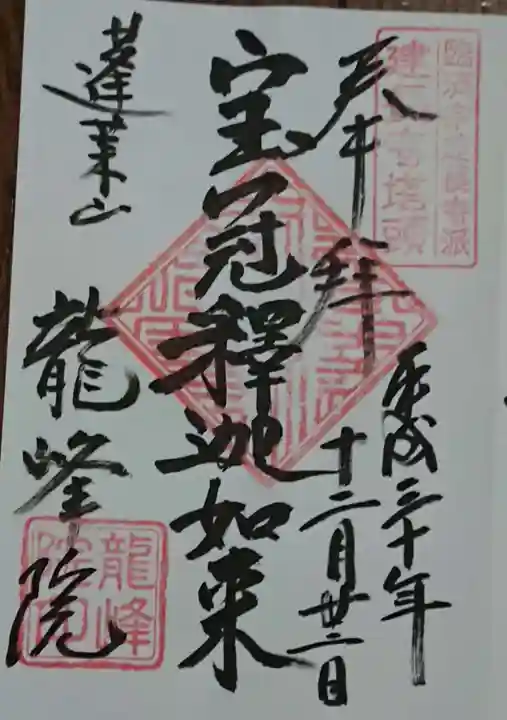 臨済宗建長寺派
建長寺塔頭
奉拝
平成三十年
十二月廿二日
宝冠釋迦如来
蓬莱山
龍峰院
龍峰
院印